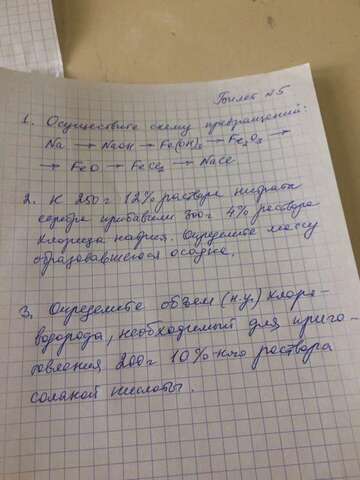 Билет №5
1. Осуществите схему превращений:
Na → NaOH → Fe(OH)3 → Fe2O3 →
→ FeO → FeCl2 → NaCl
2. К 250г 12% раствора нитрата
серебра прибавили 300г 4% раствора
хлорида натрия. Определите массу
образовавшегося осадка.
3. Определите объем (н.у.) хлоро-
водорода, необходимый для приго-
товления 200г 10%-ного раствора
соляной кислоты.